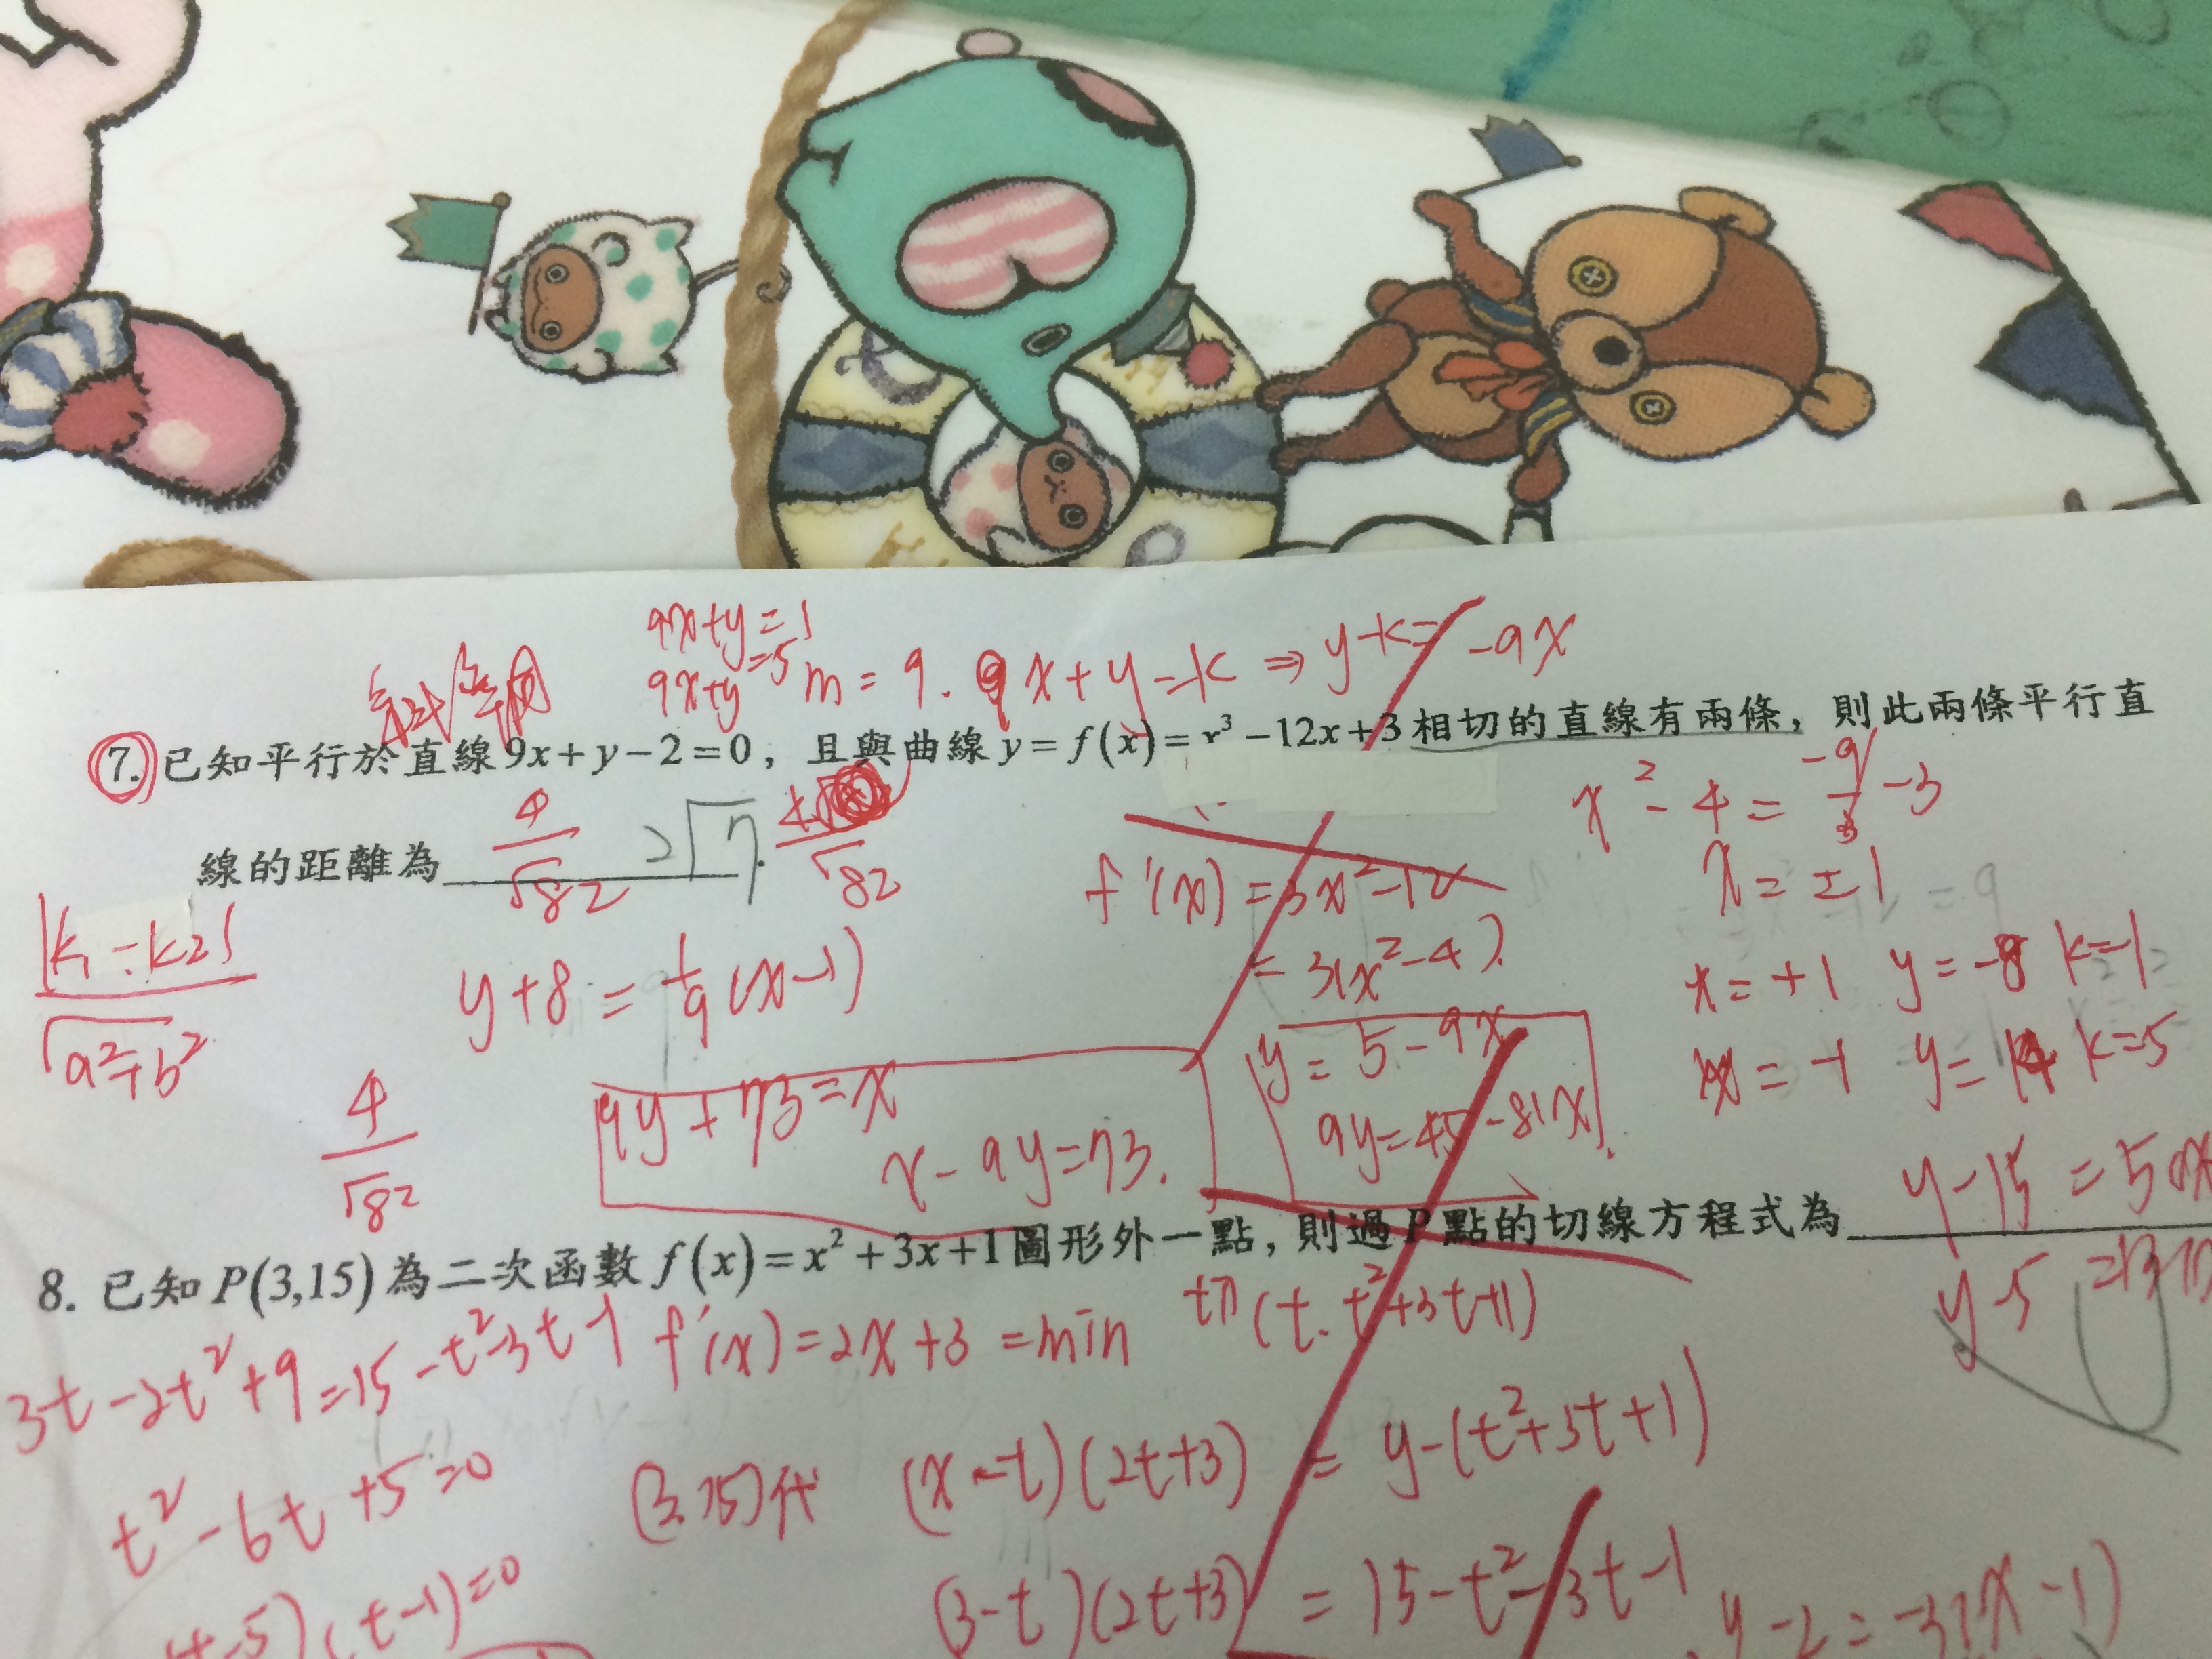 9x+y=1
9x+y=5
m=9. 9x+y=k ⇒ y-k=-9x
7. 已知平行於直線 9x+y-2=0, 且與曲線 y=f(x)=x³-12x+3 相切的直線有兩條, 則此兩條平行直
x²-4=-9/3 -3
線的距離為 4/√82 2√7. /√82
x=±1
f'(x)=3x²-12
=3(x²-4).
|k₁-k₂|/√a²+b²
y+8=1/9(x-1)
x=+1 y=-8 k=1
x=-1 y=14 k=5
y=5-9x
9y=45-81x
9y+73=x
x-9y=73.
4/√82
8. 已知 P(3,15) 為二次函數 f(x)=x²+3x+1 圖形外一點, 則過 P 點的切線方程式為
y-15=5
y-5=13
3t-2t²+9=15-t²-3t-1
f'(x)=2x+3=min
(t, t²+3t+1)
t²-6t+5=0
(3,15)代 (x-t)(2t+3)=y-(t²+3t+1)
(t-5)(t-1)=0
(3-t)(2t+3)=15-t²-3t-1
y-2=-3(x-1)